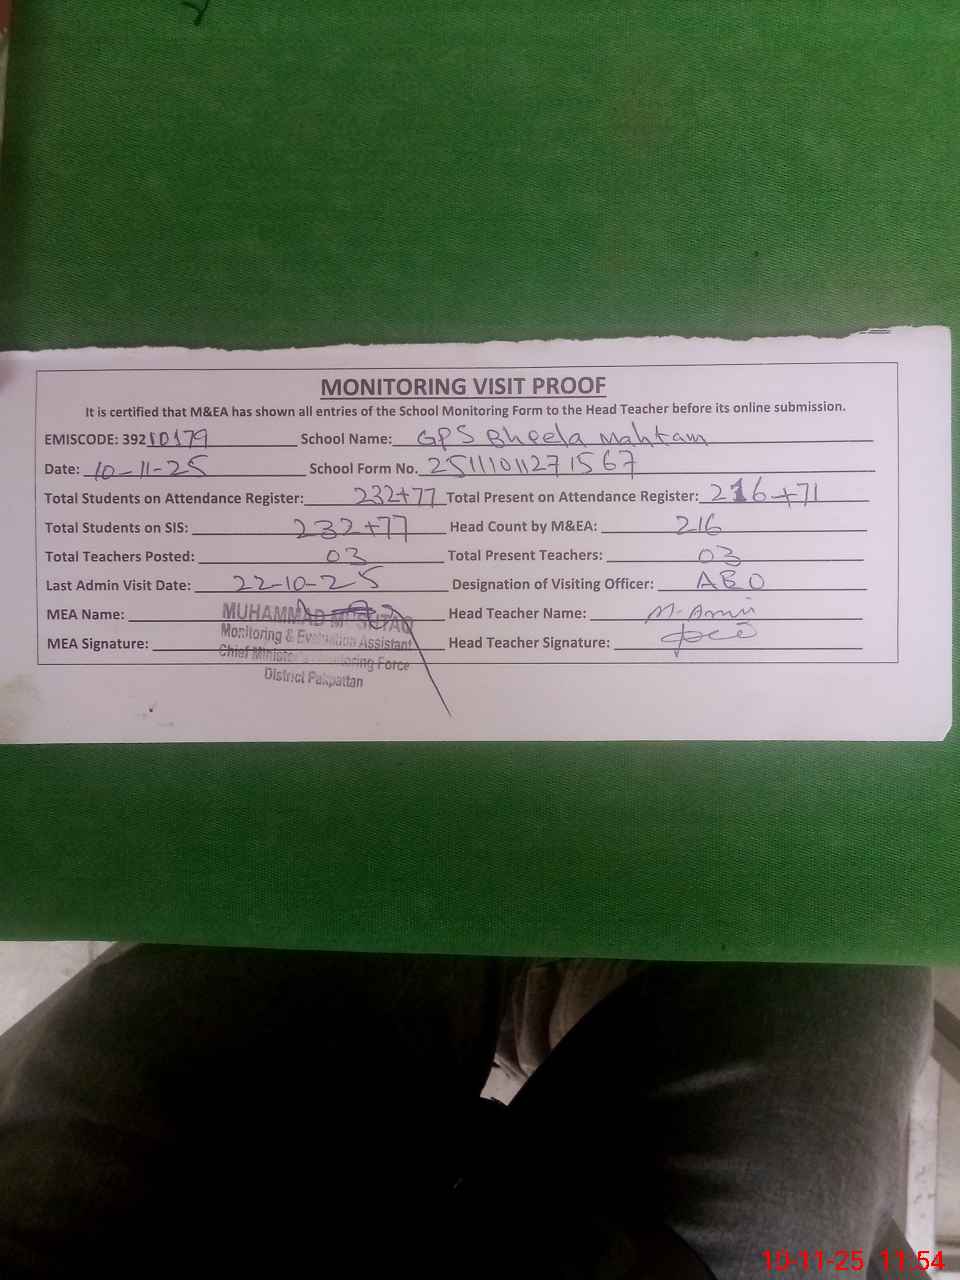 MONITORING VISIT PROOF
It is certified that M&EA has shown all entries of the School Monitoring Form to the Head Teacher before its online submission.
EMISCODE: 39210179 School Name: GPS Bheela Mahtam
Date: 10-11-25 School Form No. 2511101127 1567
Total Students on Attendance Register: 232+77 Total Present on Attendance Register: 216+71
Total Students on SIS: 232+77 Head Count by M&EA: 216
Total Teachers Posted: 03 Total Present Teachers: 03
Last Admin Visit Date: 22-10-25 Designation of Visiting Officer: AEO
MEA Name: MUHAMMAD MUSHTAQ Head Teacher Name: M. Amin
Monitoring & Evaluation Assistant
MEA Signature: Head Teacher Signature:
Chief Minister's Monitoring Force
District Pakpattan
10-11-25 11:54